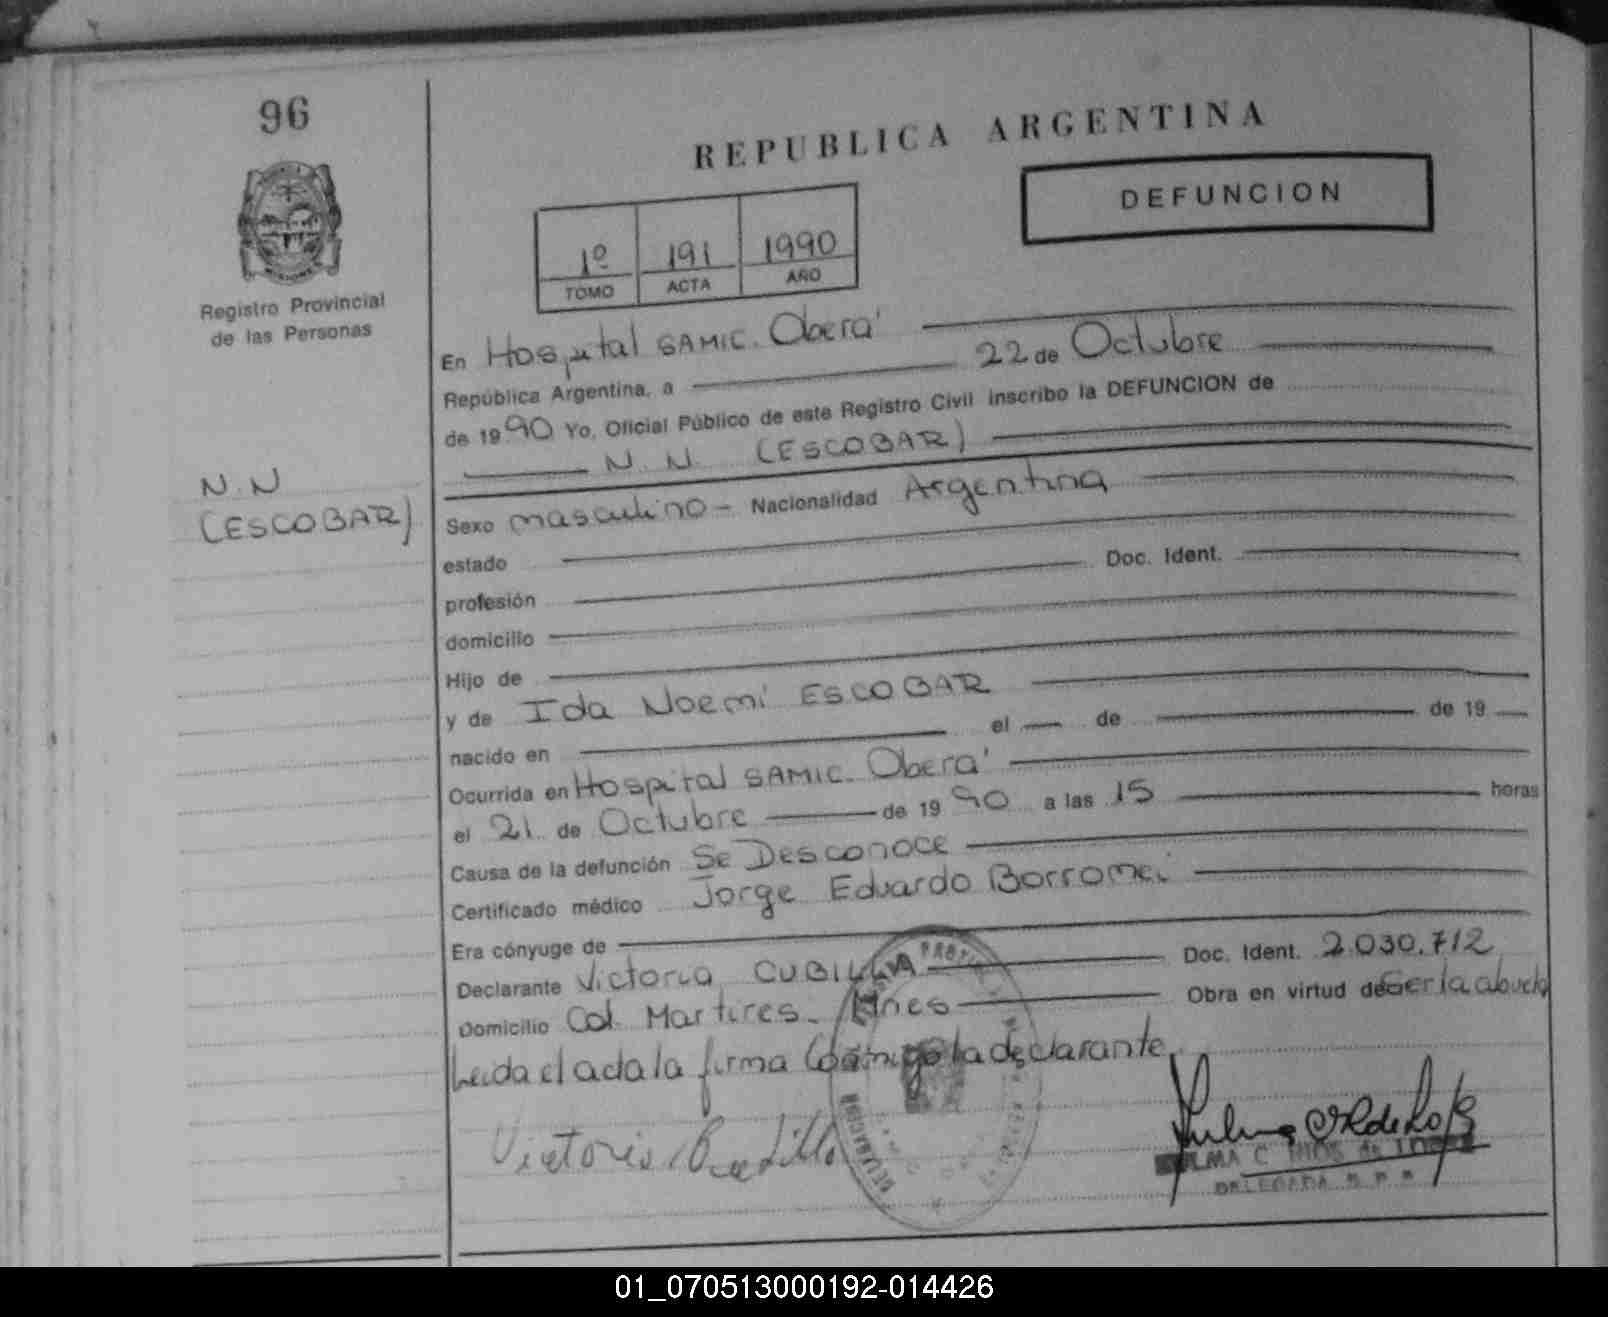 96
REPUBLICA ARGENTINA
DEFUNCION
1º 191 1990
TOMO ACTA AÑO
Registro Provincial
de las Personas
En Hospital SAMIC. Oberá
República Argentina, a 22 de Octubre
de 1990 Yo, Oficial Público de este Registro Civil inscribo la DEFUNCION de
N. N. (ESCOBAR)
N.N
(ESCOBAR)
Sexo masculino - Nacionalidad Argentina
estado
profesión Doc. Ident.
domicilio
Hijo de
y de Ida Noemí ESCOBAR
nacido en el de de 19
Ocurrida en Hospital SAMIC. Oberá
el 21 de Octubre de 1990 a las 15 horas
Causa de la defunción Se Desconoce
Certificado médico Jorge Eduardo Borromei
Era cónyuge de
Declarante Victoria CUBILLA Doc. Ident. 2.030.712
Domicilio Col. Martires. Mnes Obra en virtud de ser la abuela
Leida el acta la firma Conmigo la declarante.
Victoria
RIOS de
DELEGADA
01_070513000192-014426